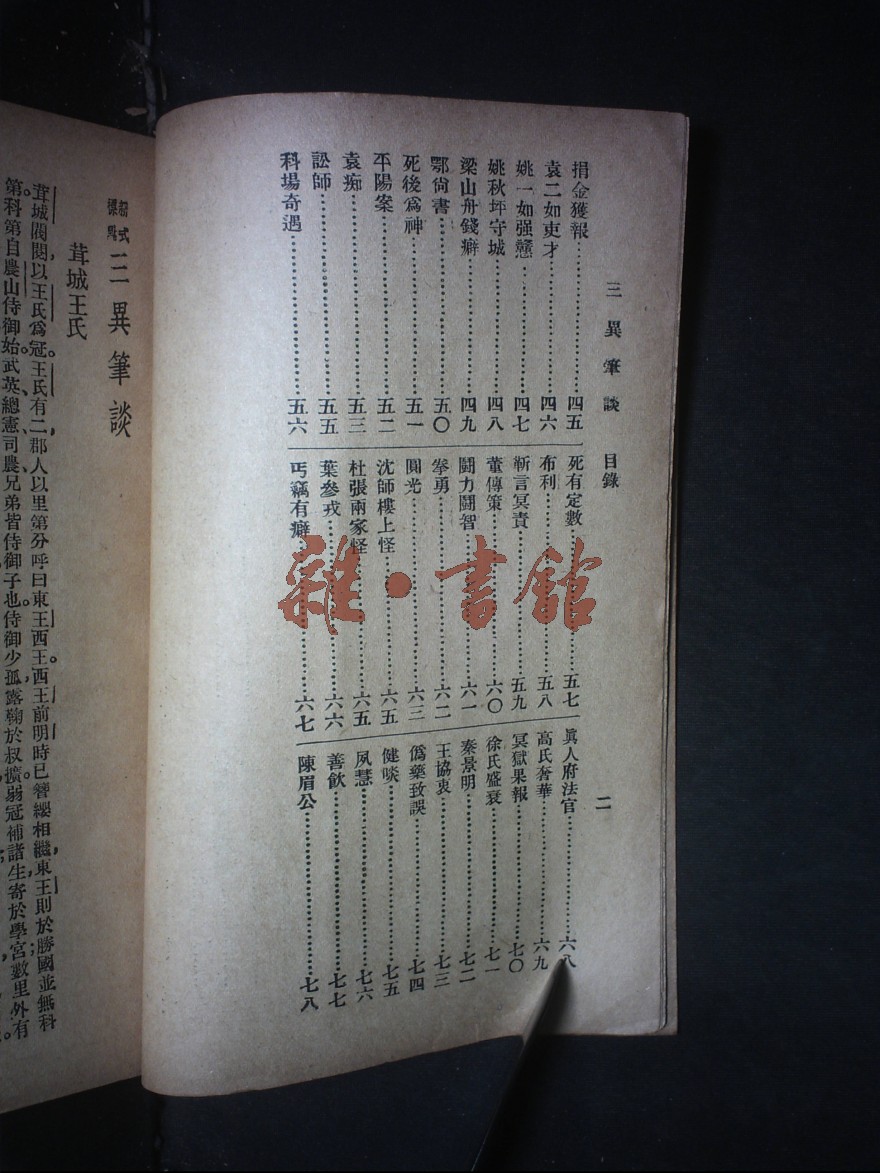 三異筆談 目錄 二
捐金獲報……四五
袁二如吏才……四六
姚一如强戇……四七
姚秋坪守城……四八
梁山舟錢癖……四九
鄂尙書……五〇
死後爲神……五一
平陽案……五二
袁痴……五三
訟師……五五
科場奇遇……五六
死有定數……五七
布利……五八
靳言冥責……五九
董傳策……六〇
鬪力鬪智……六一
拳勇……六二
圓光……六三
沈師樓上怪……六五
杜張兩家怪……六五
葉參戎……六六
丐竊有癖……六七
眞人府法官……六八
高氏奢華……六九
冥獄果報……七〇
徐氏盛衰……七一
秦景明……七二
王協衷……七三
僞藥致誤……七四
健啖……七五
夙慧……七六
善飮……七七
陳眉公……七八
雜·書館
新式標點 三異筆談
茸城王氏
茸城閥閱，以王氏爲冠。王氏有二，郡人以里第分呼曰東王西王。西王前明時已簪纓相繼，東王則於勝國並無科
第。科第自農山侍御始，武英、總憲、司農兄弟皆侍御子也。侍御少孤，露鞠於叔擴。弱冠補諸生，寄於學宮數里外，有